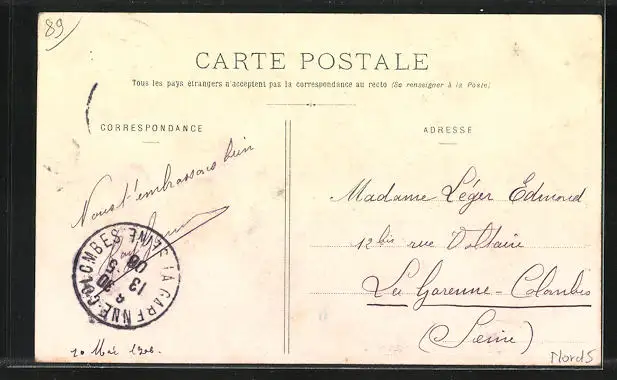 89
CARTE POSTALE
Tous les pays étrangers n'acceptent pas la correspondance au recto (Se renseigner à la Poste)
CORRESPONDANCE
Nous t'embrassons bien
10 Mai 1906.
ADRESSE
Madame Léger Edmond
12 bis rue Voltaire
La Garenne-Colombes
(Seine)
LA GARENNE-COLOMBES
SEINE
13
5
06
Nord5